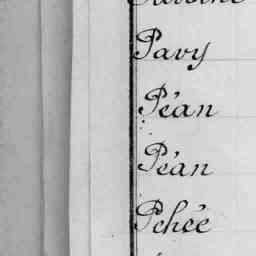 Pavy
Péan
Péan
Pehée